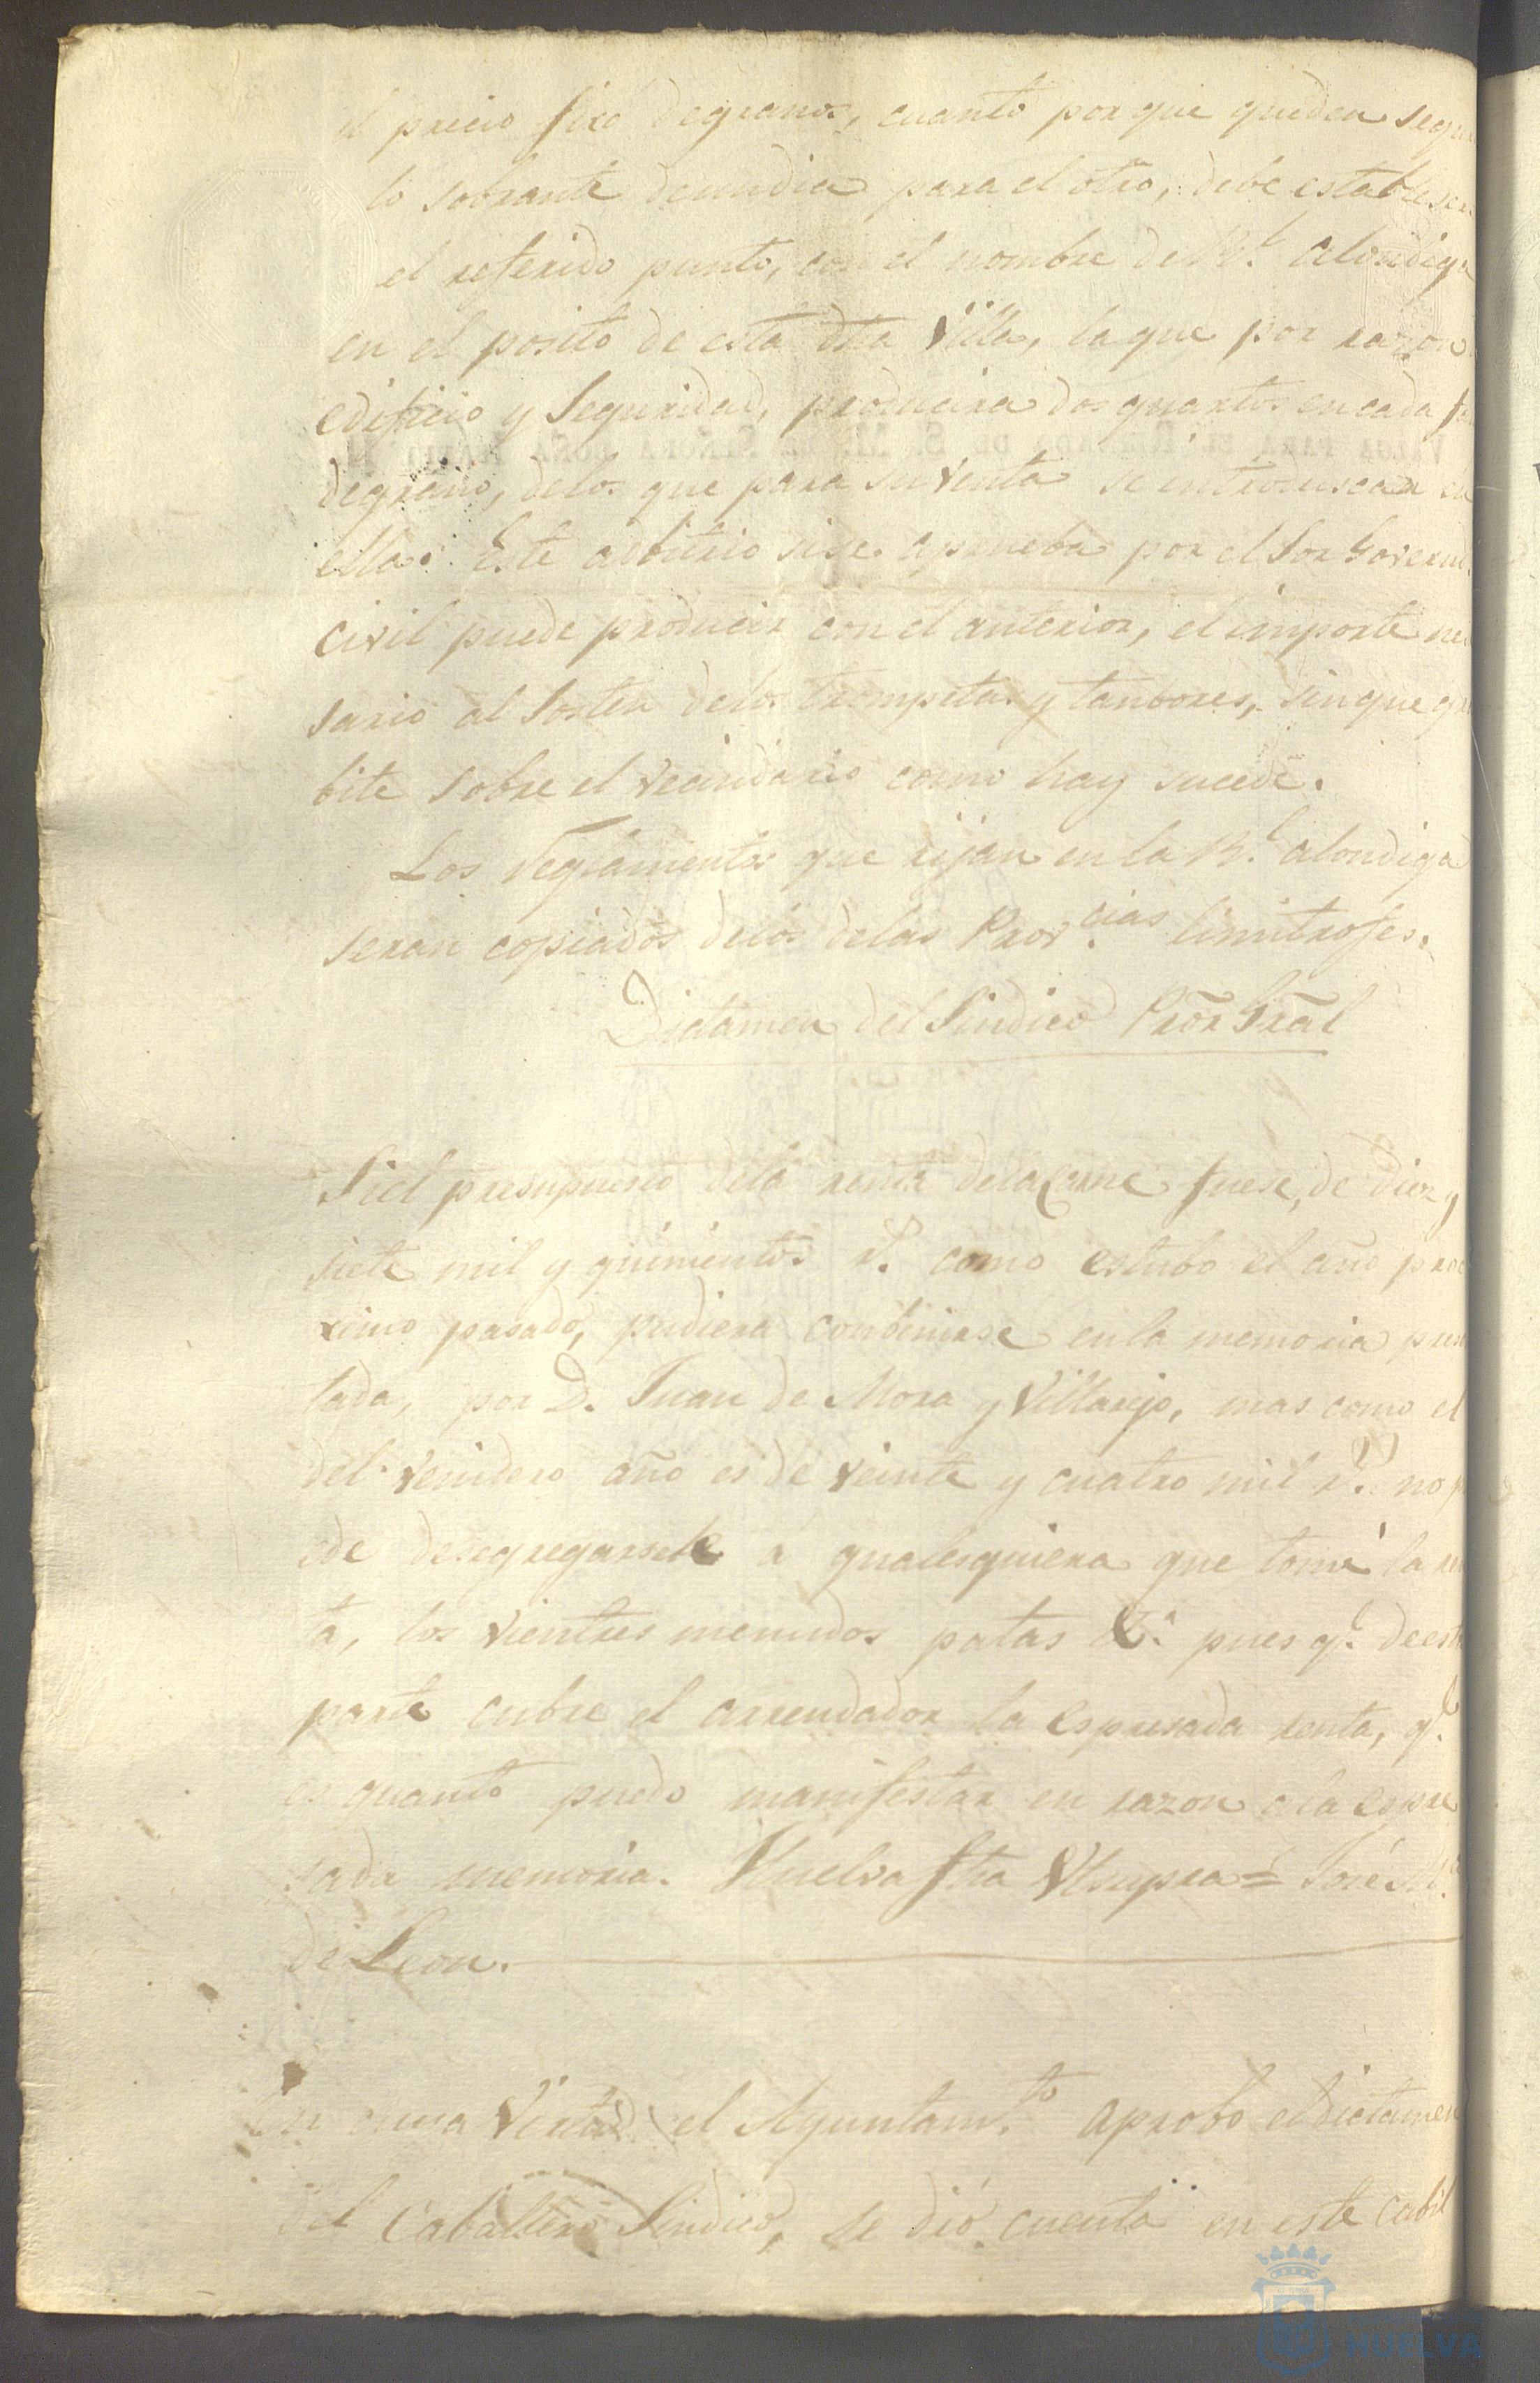 el precio fixo de granos, cuanto por que queden segu
lo sobrante de un dia para el otro, debe estableser
el referido punto, con el nombre de Rl. Alondiga
en el posito de esta dha Villa, la que por razon
edificio y Seguridad, producira dos quartos en cada fa
de grano, de los que para su venta se introduscan en
ella. Este adbitrio si se aprueba por el Sor Governr.
Civil puede producir con el anterior, el importe nes
sario al sosten de los trompetas y tanbores, sin que gra
bite sobre el vecindario como hay sucede.
Los Reglamentos que rijan en la Rl. alondiga
seran copiados de los de las Provcias. limitrofes.
Dictamen del Sindico Pror Gral
Si el presupuesto de la renta de la Carne fuese, de Diez y
siete mil y quinientos rs. como estubo el año pro
ximo pasado, pudiera conbenirse en la memoria presen
tada, por D. Juan de Mora y Villarejo, mas como el
del venidero año es de veinte y cuatro mil rs. no p
ede desegregarsele a qualesquiera que tome la ren
ta, los vientres menudos patas &a. pues qe. de esta
parte cubre el arrendador la espresada renta, qe.
es quanto puedo manifestar en razon a la espre
sada memoria. Huelva fha Utsupra = José Ma.
de Leon.
En cuya virtud el Ayuntamto. aprobo el dictamen
del Caballero Sindico, se dió cuenta en este cabil
HUELVA